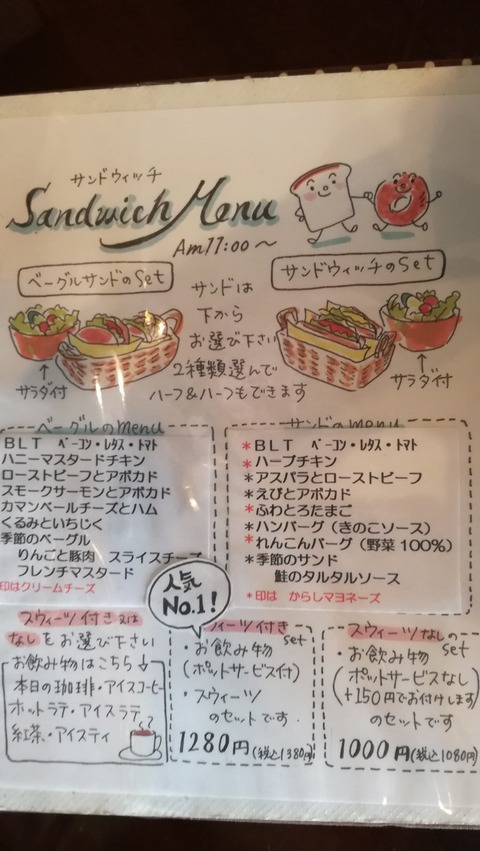 サンドウィッチ
Sandwich Menu
Am11:00〜
ベーグルサンドのset
サンドウィッチのset
サンドは
下から
お選び下さい
2種類選んで
ハーフ&ハーフもできます
サラダ付
サラダ付
ベーグルのmenu
BLT ベーコン・レタス・トマト
ハニーマスタードチキン
ローストビーフとアボカド
スモークサーモンとアボカド
カマンベールチーズとハム
くるみといちじく
季節のベーグル
りんごと豚肉 スライスチーズ
フレンチマスタード
印はクリームチーズ
サンドのmenu
*BLT ベーコン・レタス・トマト
*ハーブチキン
*アスパラとローストビーフ
*えびとアボカド
*ふわとろたまご
*ハンバーグ(きのこソース)
*れんこんバーグ(野菜100%)
*季節のサンド
鮭のタルタルソース
*印は からしマヨネーズ
人気
No.1!
スウィーツ付き又は
なしをお選び下さい
お飲み物はこちら↓
本日の珈琲・アイスコーヒー
ホットラテ・アイスラテ
紅茶・アイスティ
スウィーツ付き
set
・お飲み物
(ポットサービス付)
・スウィーツ
のセットです.
1280円(税込1380円)
スウィーツなしの
set
・お飲み物
(ポットサービスなし)
(+150円でお付けします)
のセットです
1000円(税込1080円)